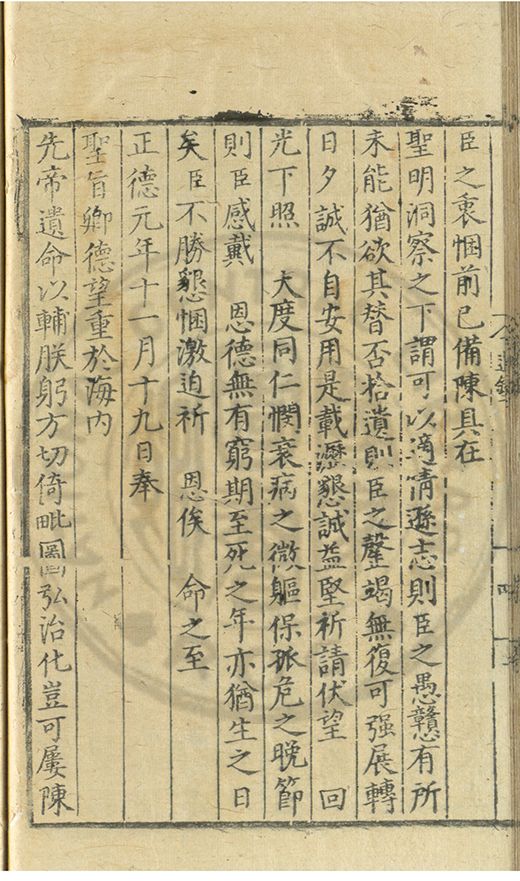 臣之衷悃前已備陳具在
聖明洞察之下謂可以適情遜志則臣之愚戇有所
未能猶欲其替否拾遺則臣之罄竭無復可强展轉
日夕誠不自安用是載瀝懇誠益堅祈請伏望　回
光下照　大度同仁憫衰病之微軀保孤危之晚節
則臣感戴　恩德無有窮期至死之年亦猶生之日
矣臣不勝懇悃激迫祈　恩俟　命之至
正德元年十一月十九日奉
聖旨卿德望重於海内
先帝遺命以輔朕躬方切倚毗圖弘治化豈可屢陳